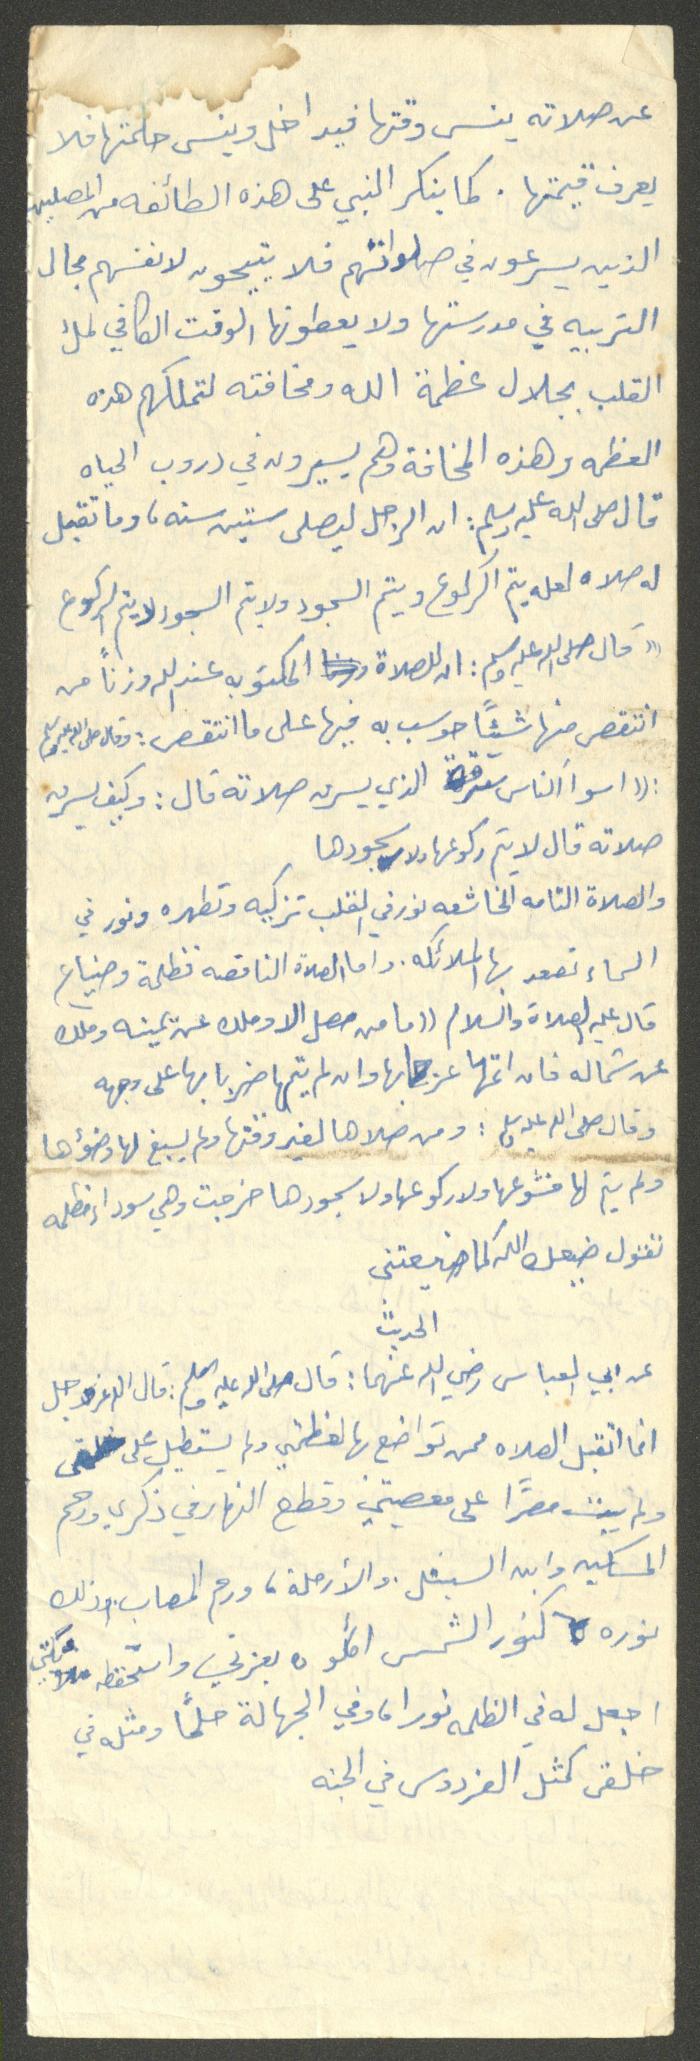 عن صلاته ينسى وقتها فيداخل وينسى حكمتها فلا
يعرف قيمتها . كما ينكر النبي على هذه الطائفه من المصلين
الذين يسرعون في صلواتهم فلا يتيحون لانفسهم مجال
التربيه في مدرستها ولا يعطونها الوقت الكافي لملئ
القلب بجلال عظمة الله ومخافته لتملكهم هذه
العظمه وهذه المخافة وهم يسيرون في دروب الحياه
قال صلى الله عليه وسلم : ان الرجل ليصلى ستين سنه ، وما تقبل
له صلاه لعله يتم الركوع ويتم السجود ولا يتم السجود لا يتم الركوع
(( قال صلى الله عليه وسلم : ان للصلاة المكتوبه عند الله وزناً من
انتقص منها شيئًا حوسب به فيها على ما انتقص : وقال صلى الله عليه وسلم
: (( اسوأ الناس سرقة الذي يسرق صلاته قال : وكيف يسرق
صلاته قال لا يتم ركوعها ولا سجودها
والصلاة التامه الخاشعه نور في القلب تزكيه وتطهره ونور في
السماء تصعد بها الملائكه . واما الصلاة الناقصه فظلمة وضياع
قال عليه الصلاة والسلام (( ما من مصل الا وملك عن يمينه وملك
عن شماله فان اتمها عرجا بها وان لم يتمها ضربا بها على وجهه
وقال صلى الله عليه وسلم : ومن صلاها لغير وقتها ولم يسبغ لها وضوءها
ولم يتم لها خشوعها ولا ركوعها ولا سجودها خرجت وهي سوداء مظلمه
تقول ضيعك الله كما ضيعتنى
الحديث
عن ابي العباس رضي الله عنهما : قال صلى الله عليه وسلم : قال الله عز وجل
انما اتقبل الصلاه ممن تواضع بها لعظمتي ولم يستطيل على خلقى
ولم يبت مصرًا على معصيتي وقطع النهار في ذكري ورحم
المسكين وابن السبيل . والأرملة ، ورحم المصاب . ذلك
نوره كنور الشمس اكلوه بعزتي واستحفظه ملائكتي
اجعل له في الظلمه نورا ، وفي الجهالة حلمًا ومثله في
خلقى كمثل الفردوس في الجنه